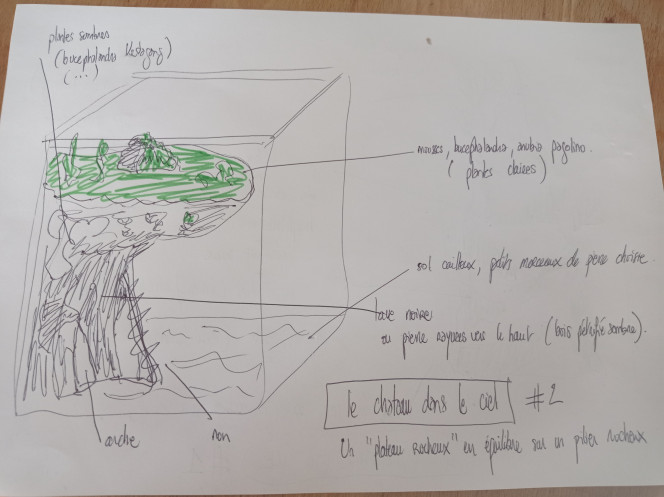 plantes sombres
(bucephalandra
(...)
mousses, bucephalandra, anubia pagolino.
(plantes claires)
sol caillteux, petits morceaux de pierre
lave noire
ou pierre rayures vers le haut (bois pétrifié sombre).
le chateau dans le ciel #2
Un "plateau Rocheux" en équilibre sur un pilier rocheux
arche
non